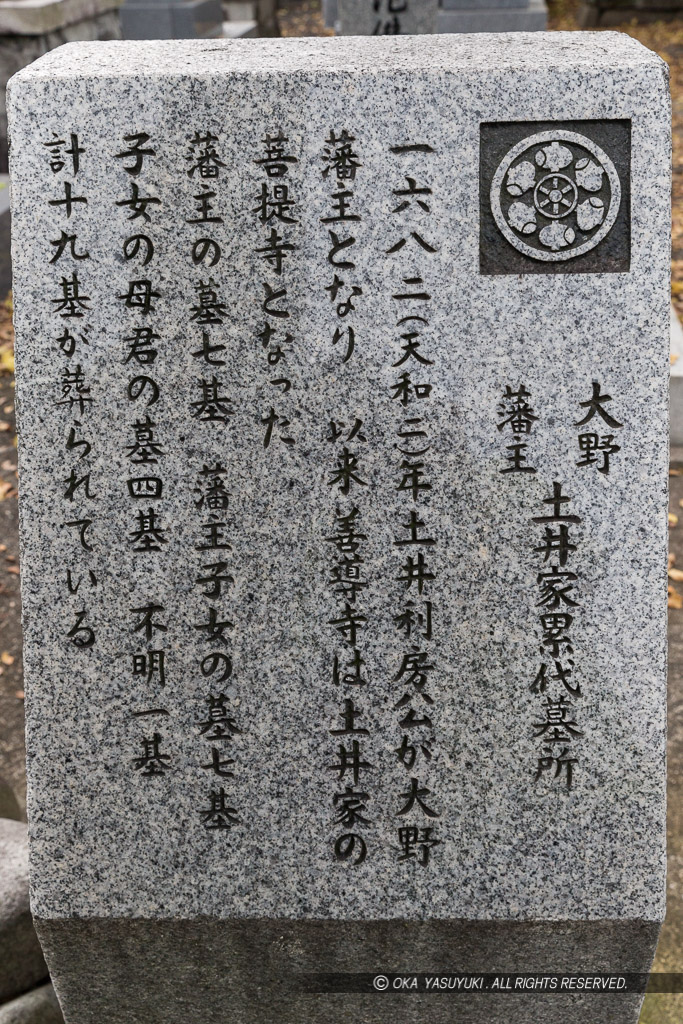 大野
藩主
土井家累代墓所
一六八二(天和二)年土井利房公が大野
藩主となり 以来善導寺は土井家の
菩提寺となった
藩主の墓七基 藩主子女の墓七基
子女の母君の墓四基 不明一基
計十九基が葬られている
© OKA YASUYUKI . ALL RIGHTS RESERVED.